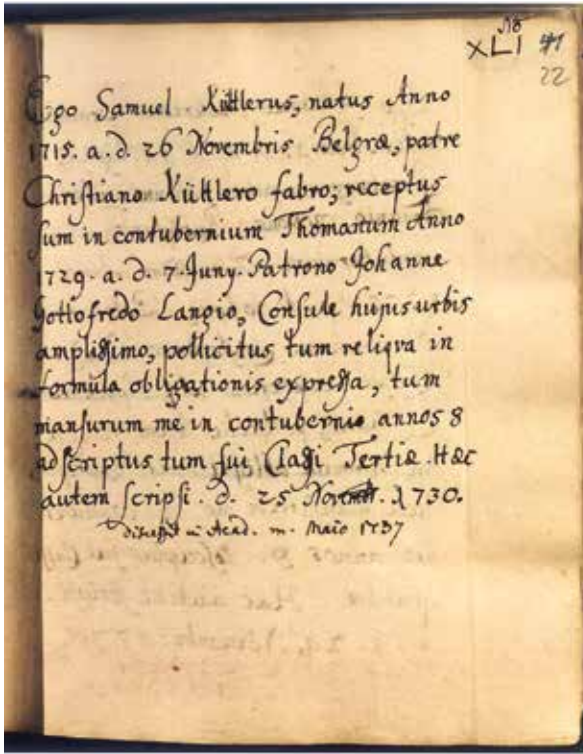 No
XLI 41
22
Ego Samuel Küttlerus, natus Anno
1715. a. d. 26 Novembris Belgræ, patre
Christiano Küttlero fabro; receptus
sum in contubernium Thomanum Anno
1729. a. d. 7. Juny. Patrono Johanne
Gottofredo Langio, Consule hujus urbis
amplissimo, pollicitus tum reliqva in
formula obligationis expressa, tum
mansurum me in contubernio annos 8
adscriptus tum fui Classi Tertiæ. Hæc
autem scripsi. d. 25 Novembr. 1730.
discessit in Acad. m. Maio 1737